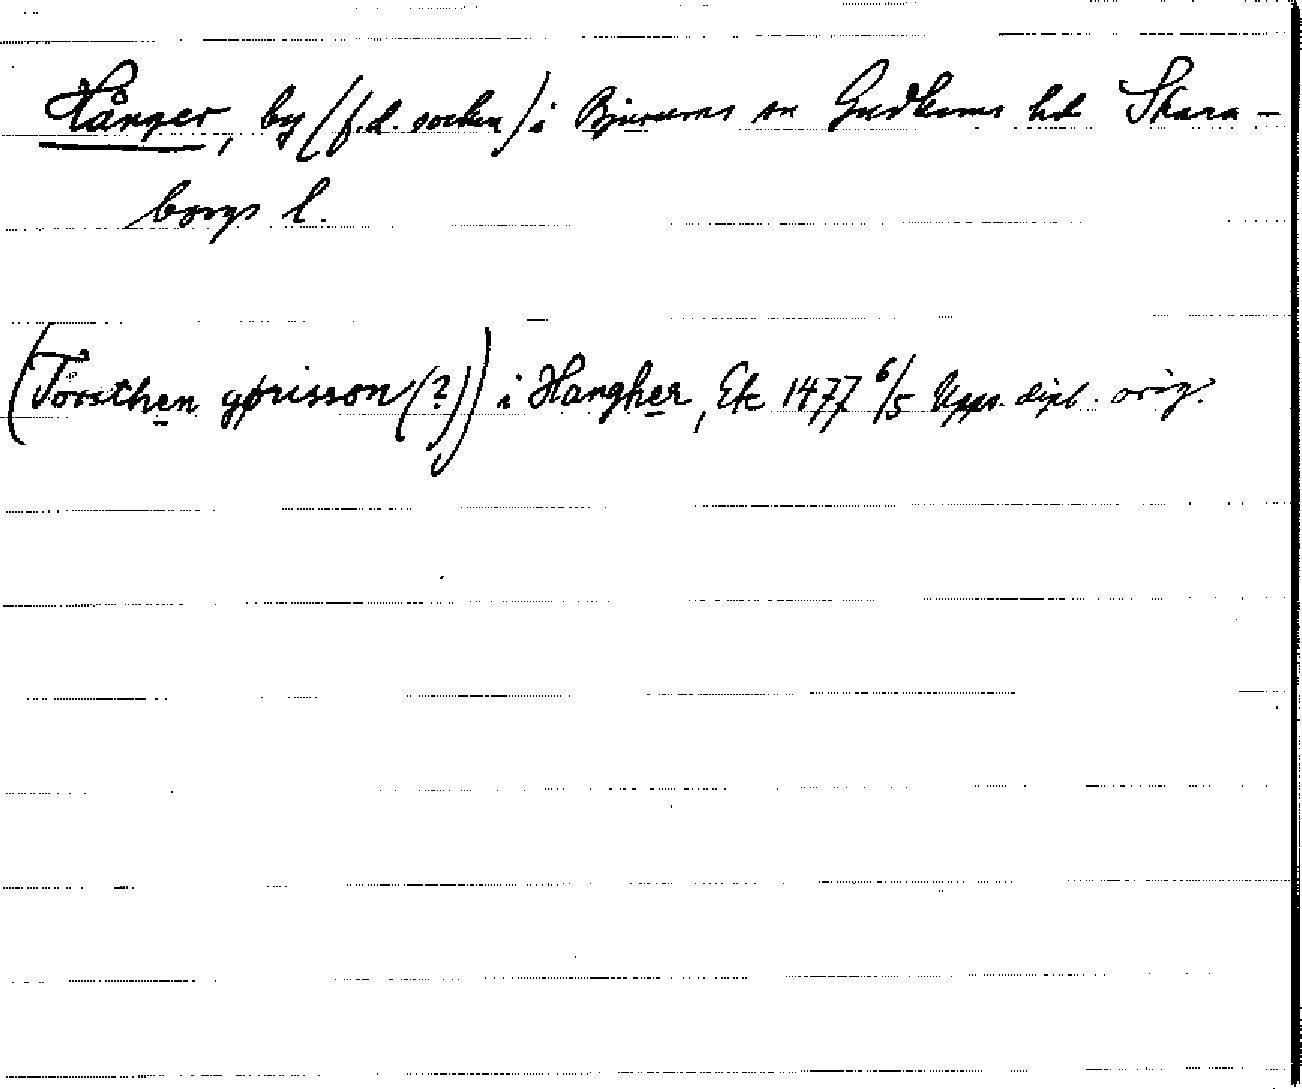 Hånger, by (f.d. socken) i Bjurums sn Gudhems hd Skara-
borgs l.
(Torsthen gørisson (?)) i Hangher, Ek 1477 6/5 Upps. dipl. orig.